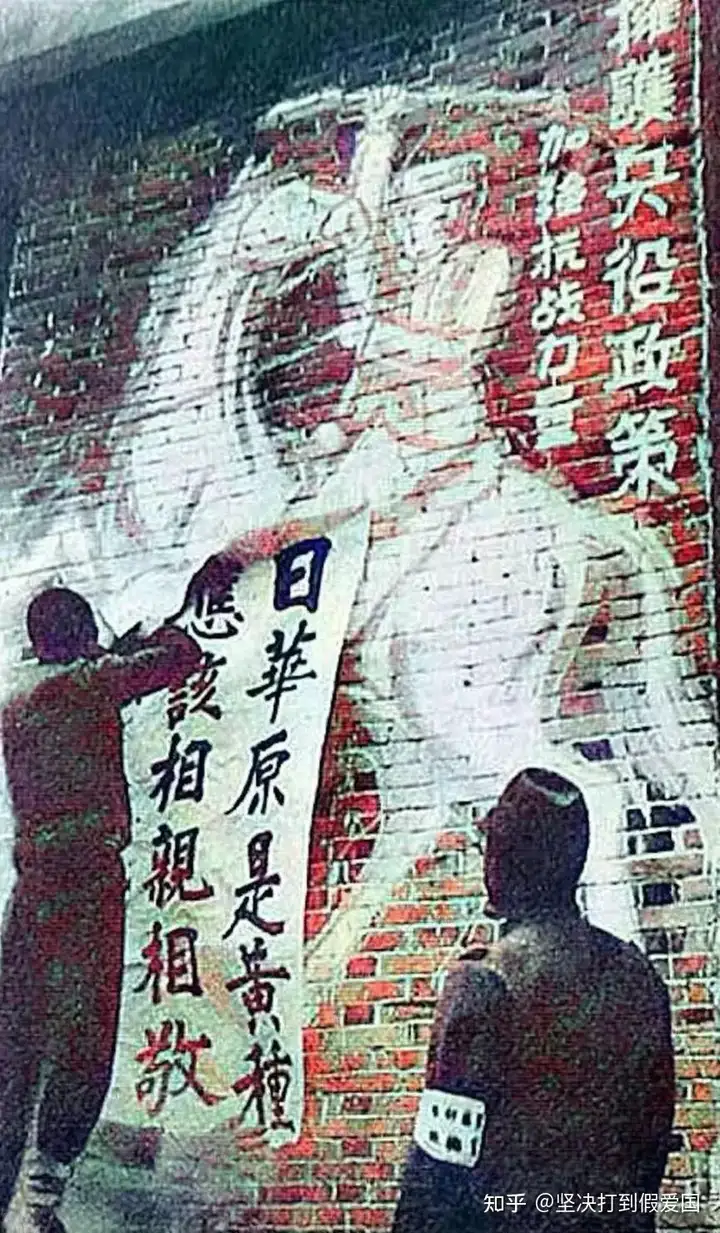 擁護兵役政策
加强抗战力量
日華原是黃種
應該相親相敬
知乎 @坚决打到假爱国